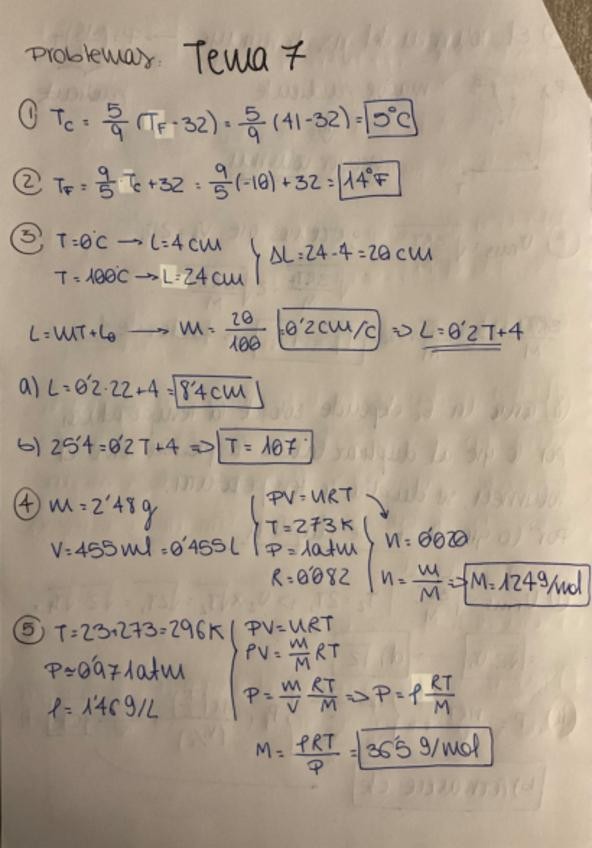 Problemas: Tema 7
① Tc = 5/9 (TF - 32) = 5/9 (41 - 32) = 5°C
② TF = 9/5 Tc + 32 = 9/5 (-10) + 32 = 14°F
③ T = 0°C → L = 4 cm
T = 100°C → L = 24 cm
ΔL = 24 - 4 = 20 cm
L = mT + L0 → m = 20/100 = 0'2 cm/C ⇒ L = 0'2T + 4
a) L = 0'2·22 + 4 = 8'4 cm
b) 25'4 = 0'2T + 4 ⇒ T = 107
④ m = 2'48 g
V = 455 ml = 0'455 L
PV = nRT
T = 273 K
P = 1 atm
R = 0'082
n = 0'020
n = m/M ⇒ M = 124 g/mol
⑤ T = 23 + 273 = 296 K
P = 0'971 atm
ρ = 1'46 g/L
PV = nRT
PV = m/M RT
P = m/V RT/M ⇒ P = ρ RT/M
M = ρRT/P = 36'5 g/mol